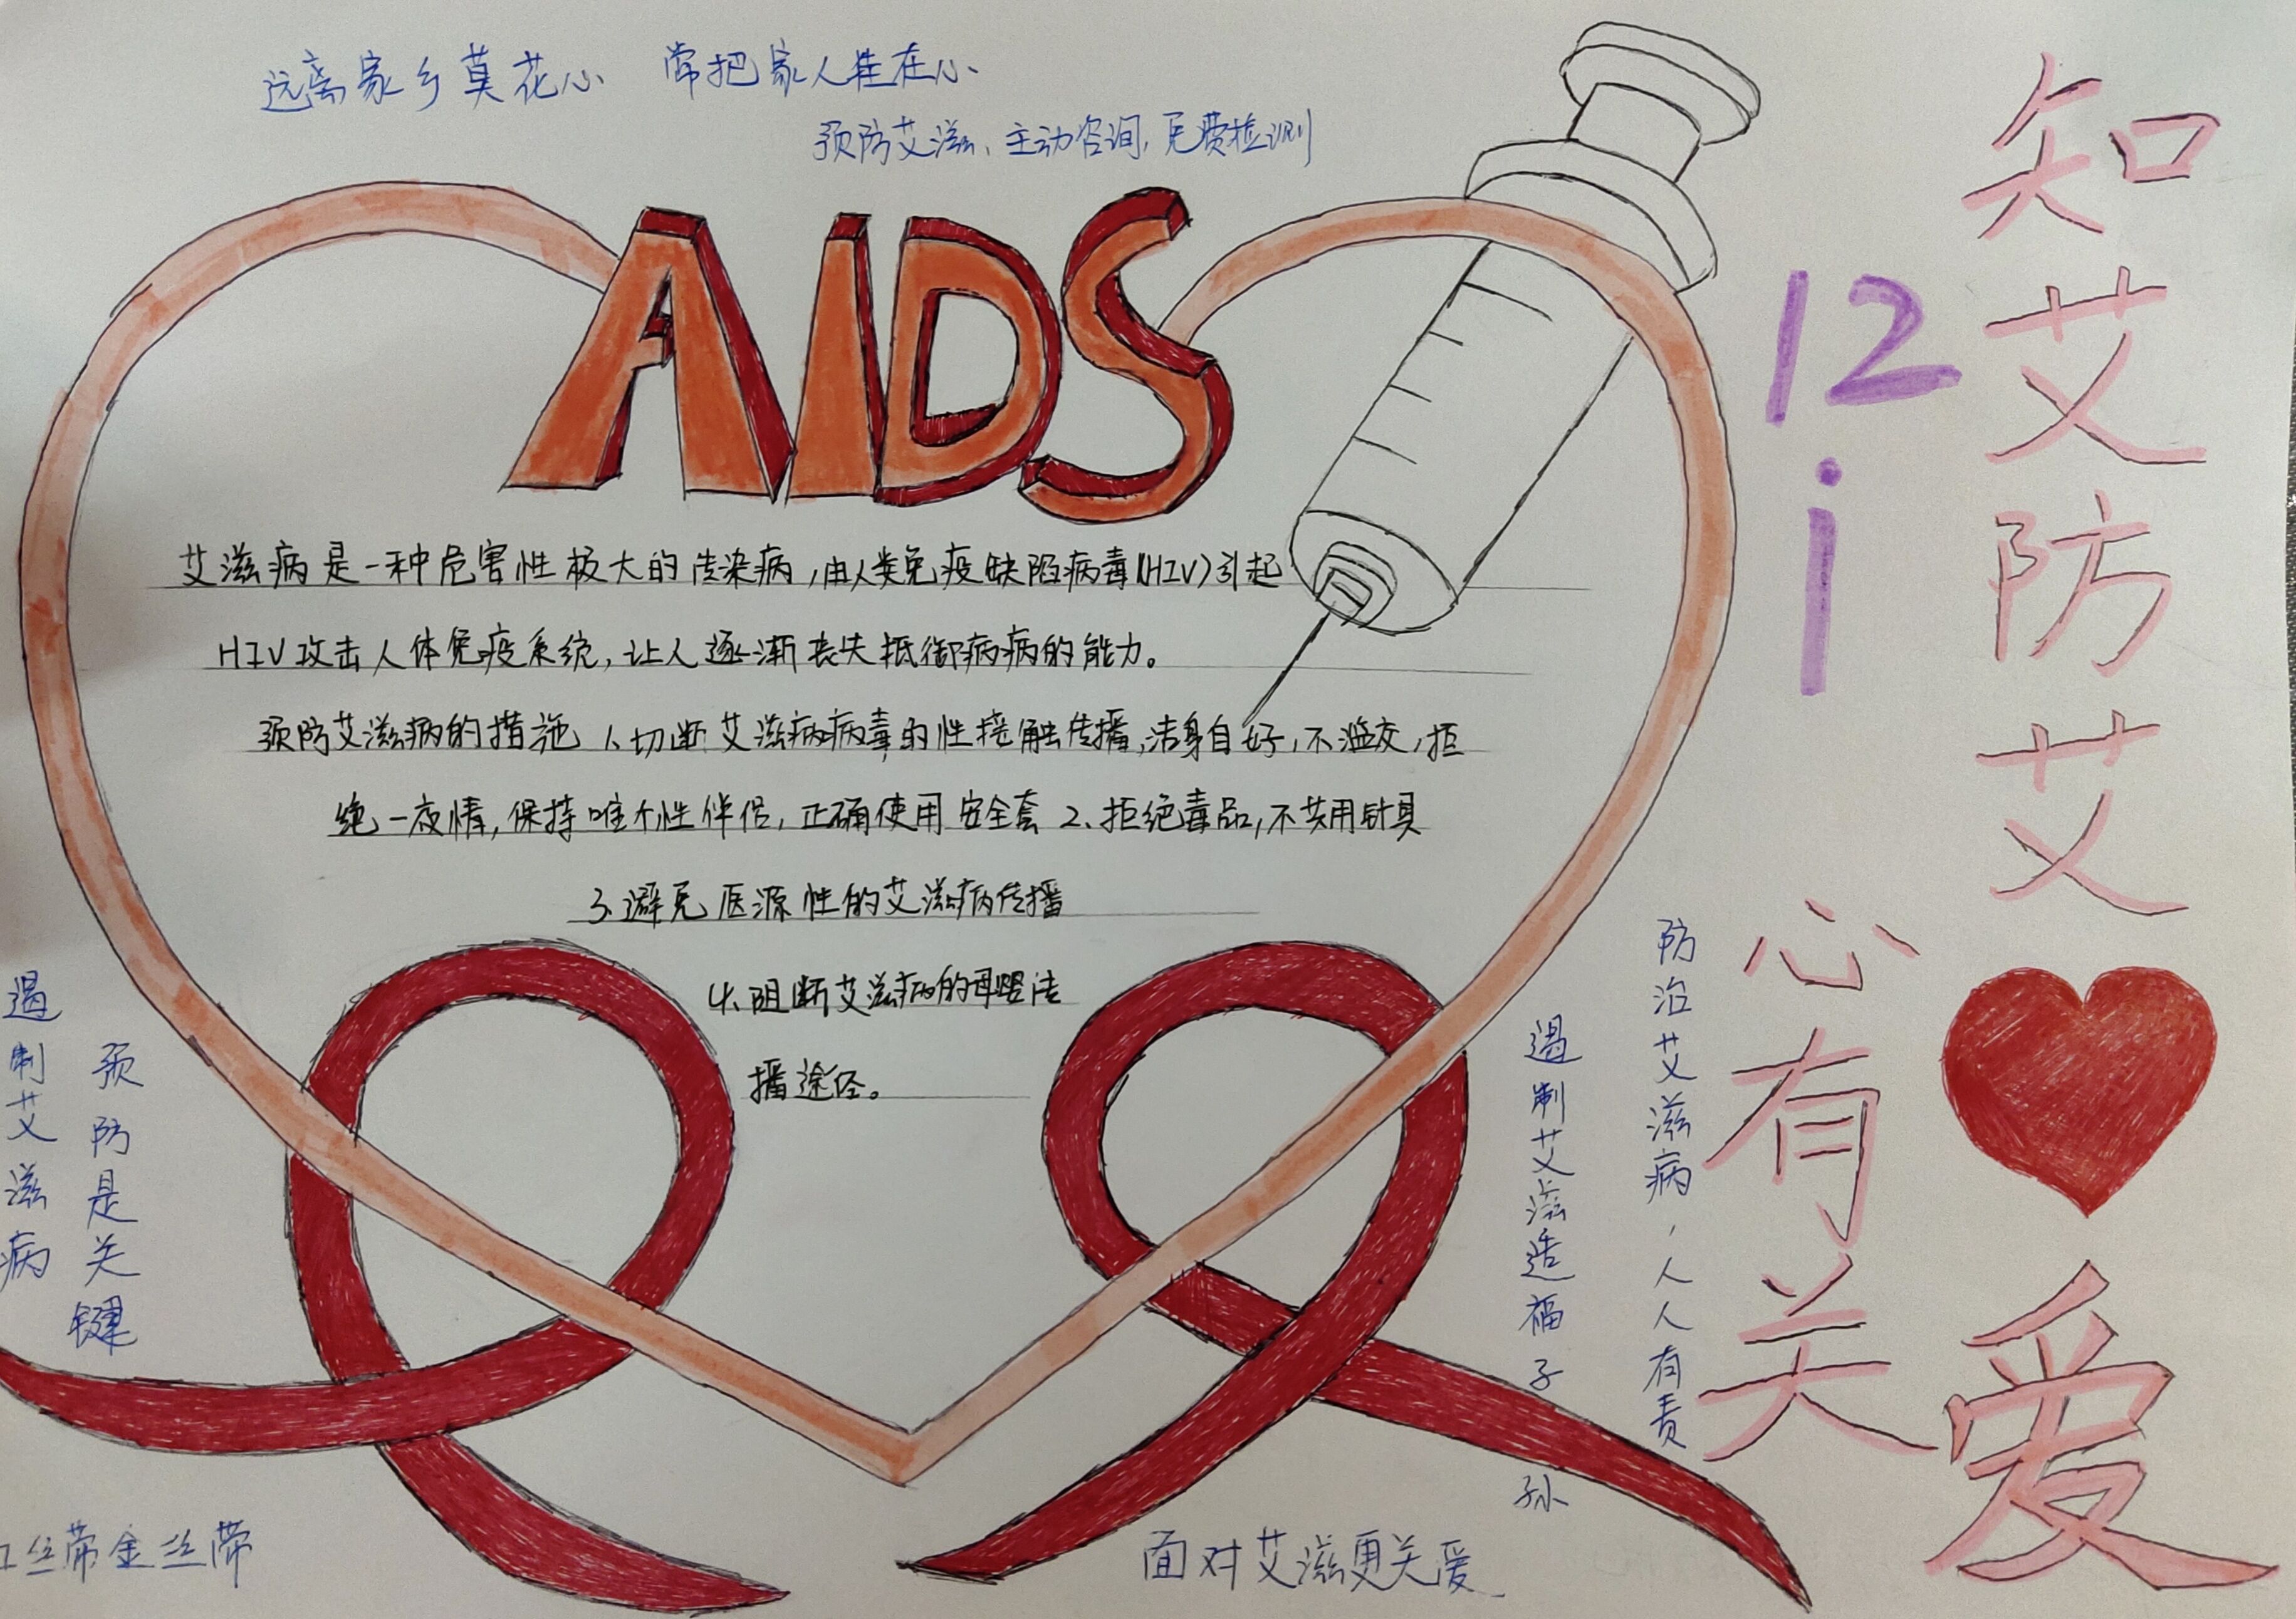 远离家乡莫花心 常把家人挂在心
预防艾滋、主动咨询,免费检测
AIDS
艾滋病是一种危害性极大的传染病,由人类免疫缺陷病毒(HIV)引起
HIV攻击人体免疫系统,让人逐渐丧失抵御病病的能力。
预防艾滋病的措施 1、切断艾滋病病毒的性接触传播,洁身自好,不滥交,拒
绝一夜情,保持唯个性伴侣,正确使用安全套 2、拒绝毒品,不共用针具
3、避免医源性的艾滋病传播
4、阻断艾滋病的母婴传
播途径。
遏制艾滋病
预防是关键
丝带金丝带
面对艾滋更关爱
遏制艾滋造福子孙
防治艾滋病,人人有责
12
i
心有关
知艾防艾
爱